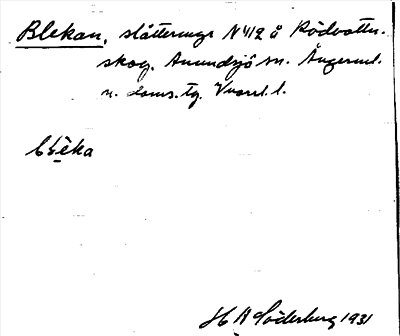 Blekan, slåttermyr N412 å Rödvattn.
skog. Anundsjö sn. Ångerml.
n. doms. tg. Vnorrl. l.
bḷẹ̄ka
H A Söderberg 1931